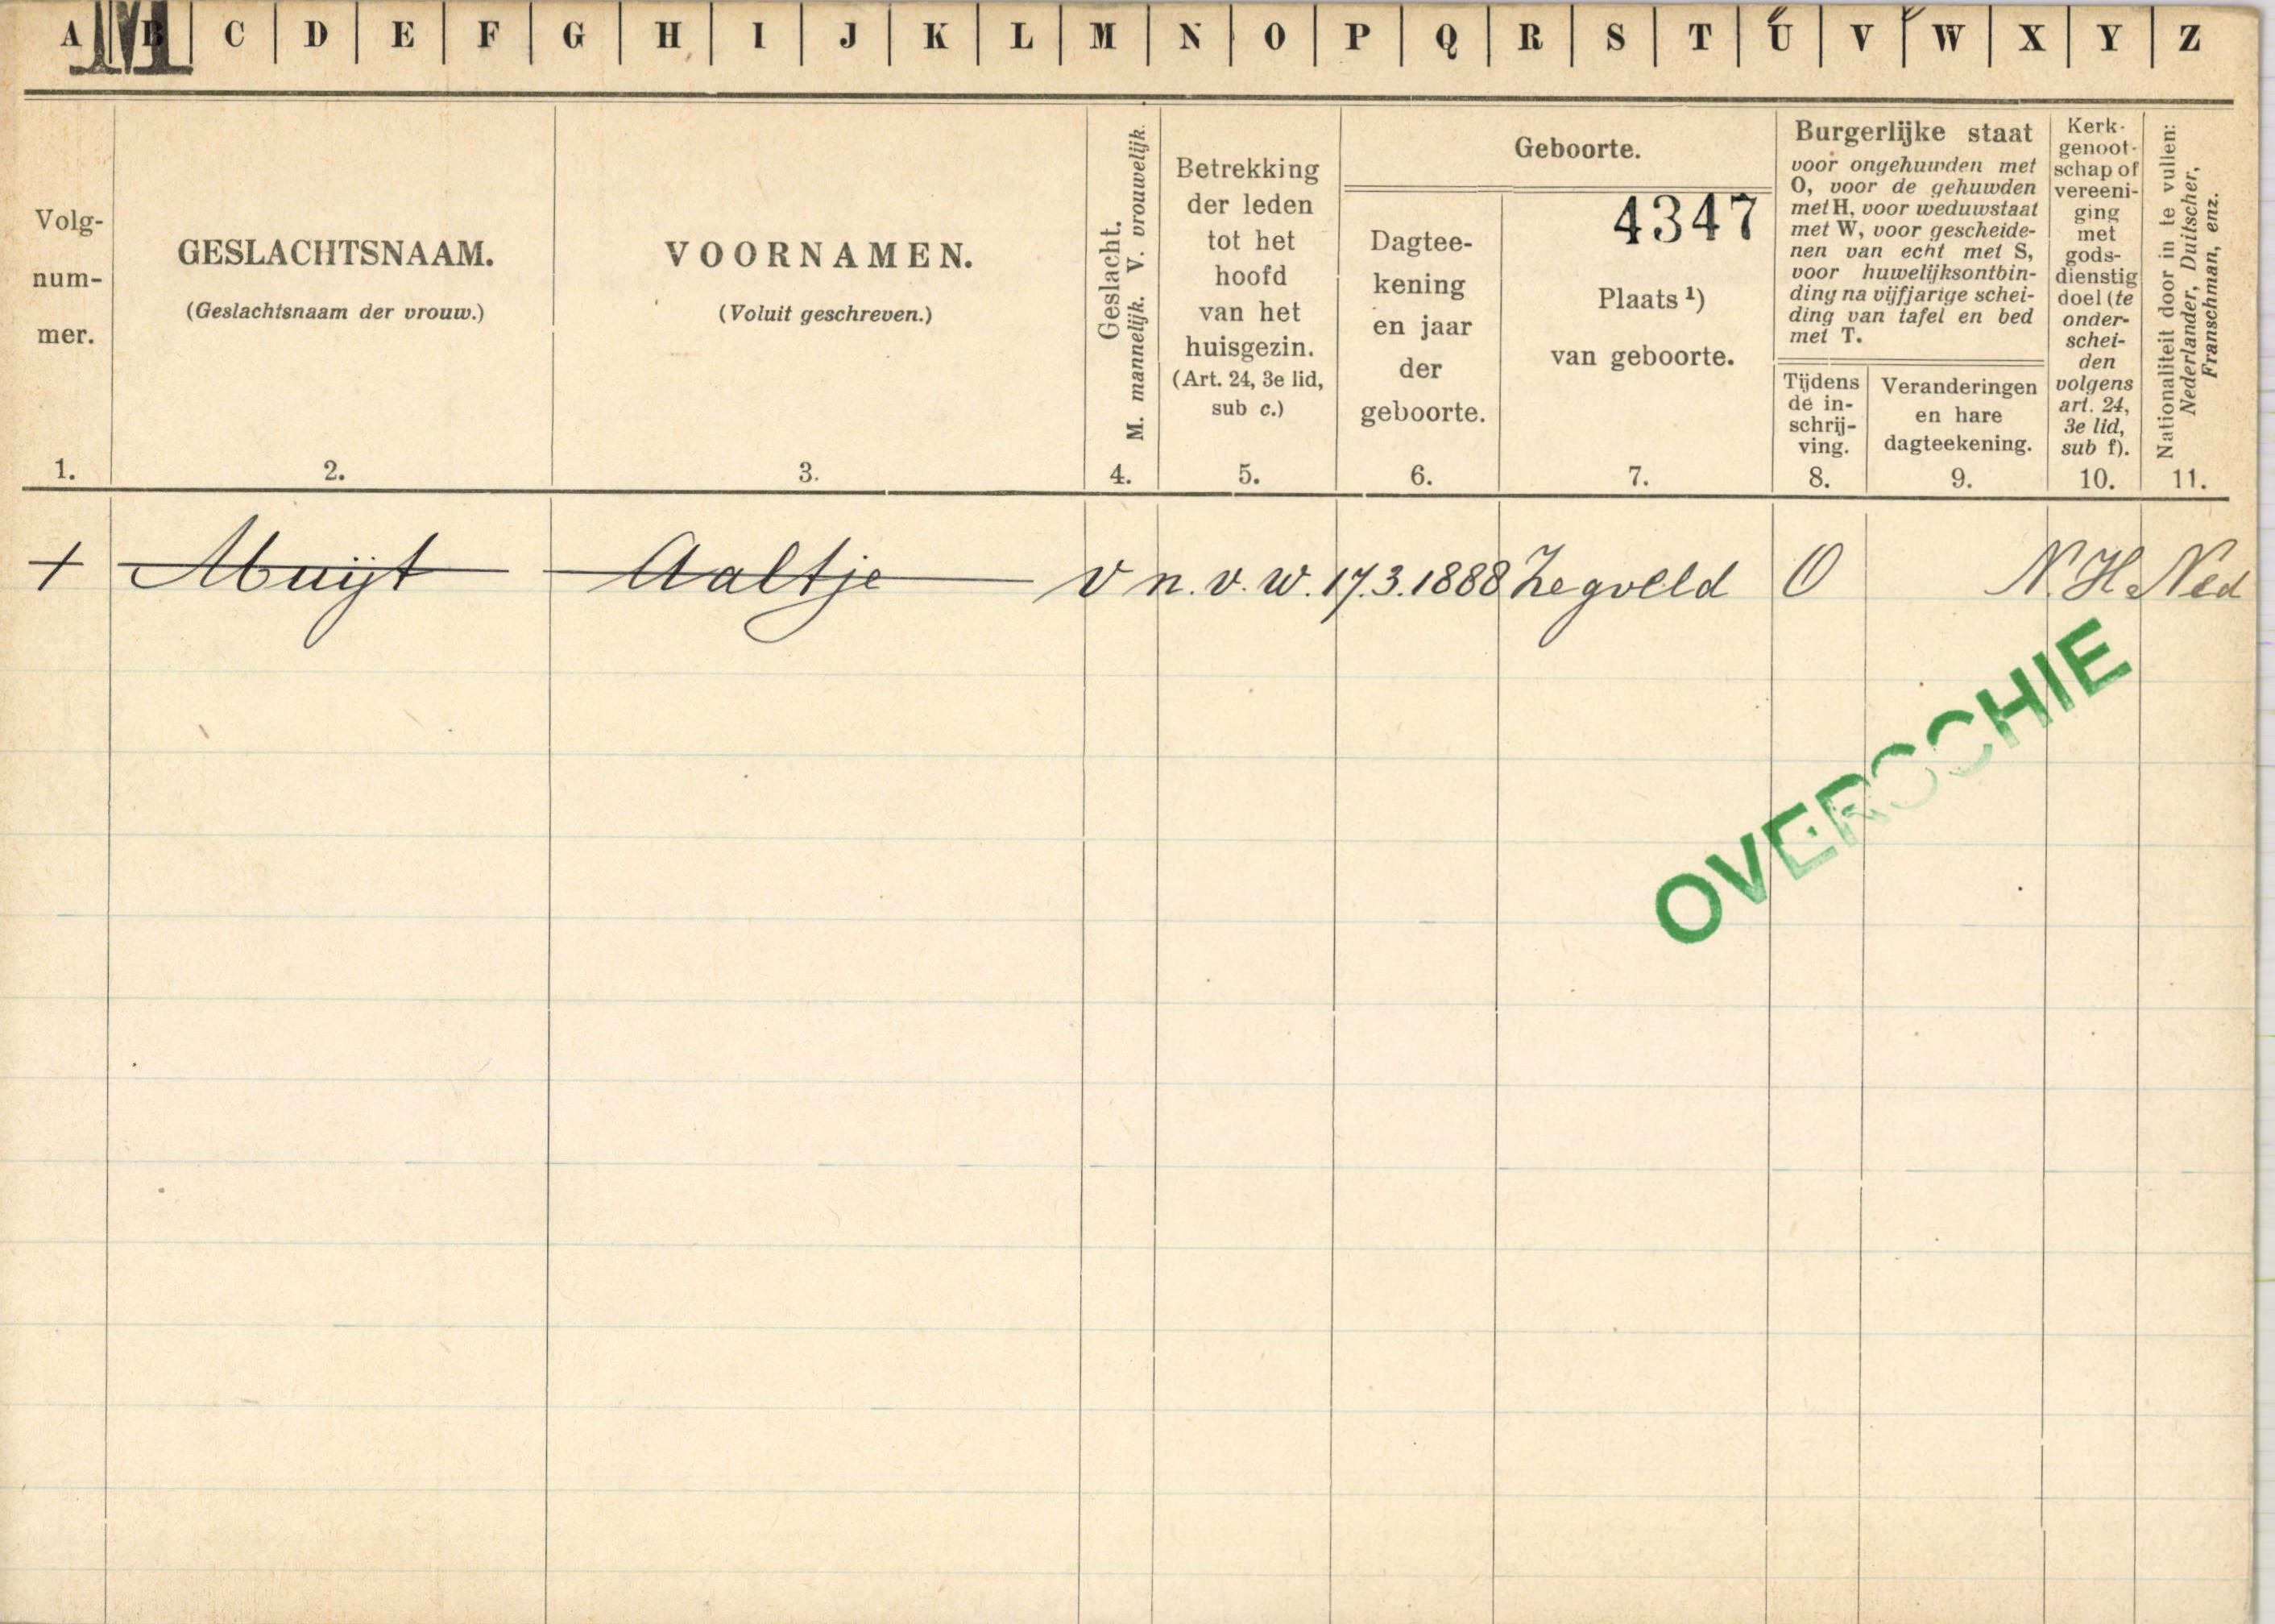 A B C D E F G H I J K L M N O P Q R S T U V W X Y Z
M
Volg-
num-
mer.
1.
GESLACHTSNAAM.
(Geslachtsnaam der vrouw.)
2.
VOORNAMEN.
(Voluit geschreven.)
3.
Geslacht.
M. mannelijk. V. vrouwelijk.
4.
Betrekking
der leden
tot het
hoofd
van het
huisgezin.
(Art. 24, 3e lid,
sub c.)
5.
Geboorte.
Dagtee-
kening
en jaar
der
geboorte.
6.
4347
Plaats ¹)
van geboorte.
7.
Burgerlijke staat
voor ongehuwden met
O, voor de gehuwden
met H, voor weduwstaat
met W, voor gescheide-
nen van echt met S,
voor huwelijksontbin-
ding na vijfjarige schei-
ding van tafel en bed
met T.
Tijdens
de in-
schrij-
ving.
8.
Veranderingen
en hare
dagteekening.
9.
Kerk-
genoot-
schap of
vereeni-
ging
met
gods-
dienstig
doel (te
onder-
schei-
den
volgens
art. 24,
3e lid,
sub f).
10.
Nationaliteit door in te vullen:
Nederlander, Duitscher,
Franschman, enz.
11.
1 Muijt Aaltje V n. v. w. 17.3.1888 Zegveld O N.H. Ned
OVERSCHIE